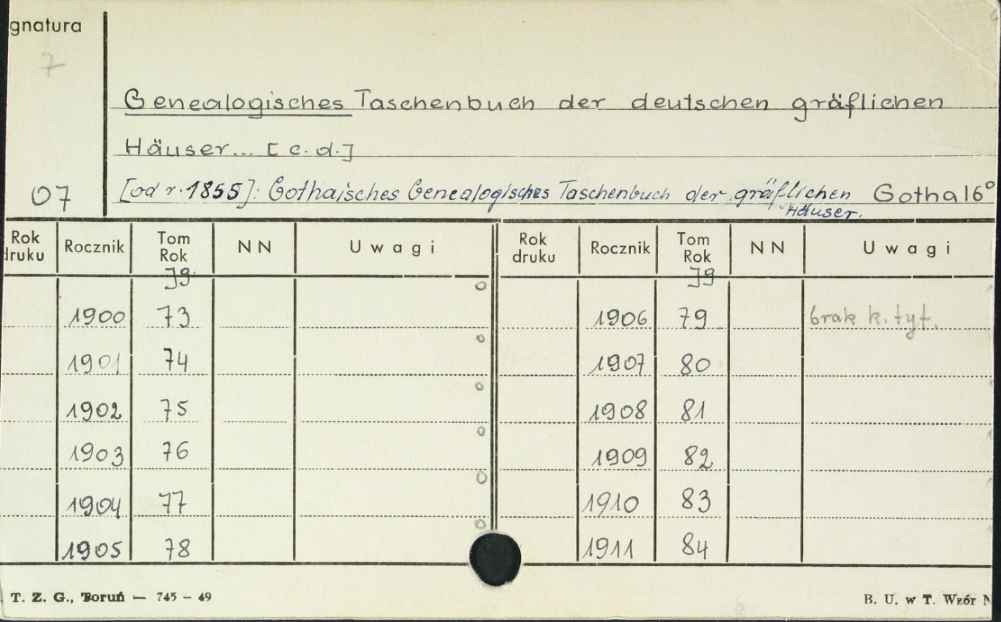 gnatura
7
Genealogisches Taschenbuch der deutschen gräflichen
Häuser... [c.d.]
07 [od r. 1855]: Gothaisches Genealogisches Taschenbuch der gräflichen Häuser. Gotha 16°
Rok druku Rocznik Tom Rok NN Uwagi Rok druku Rocznik Tom Rok NN Uwagi
Jg. Jg
1900 73 1906 79 brak k. tyt.
1901 74 1907 80
1902 75 1908 81
1903 76 1909 82
1904 77 1910 83
1905 78 1911 84
T. Z. G., Toruń — 745 - 49 B. U. w T. Wzór